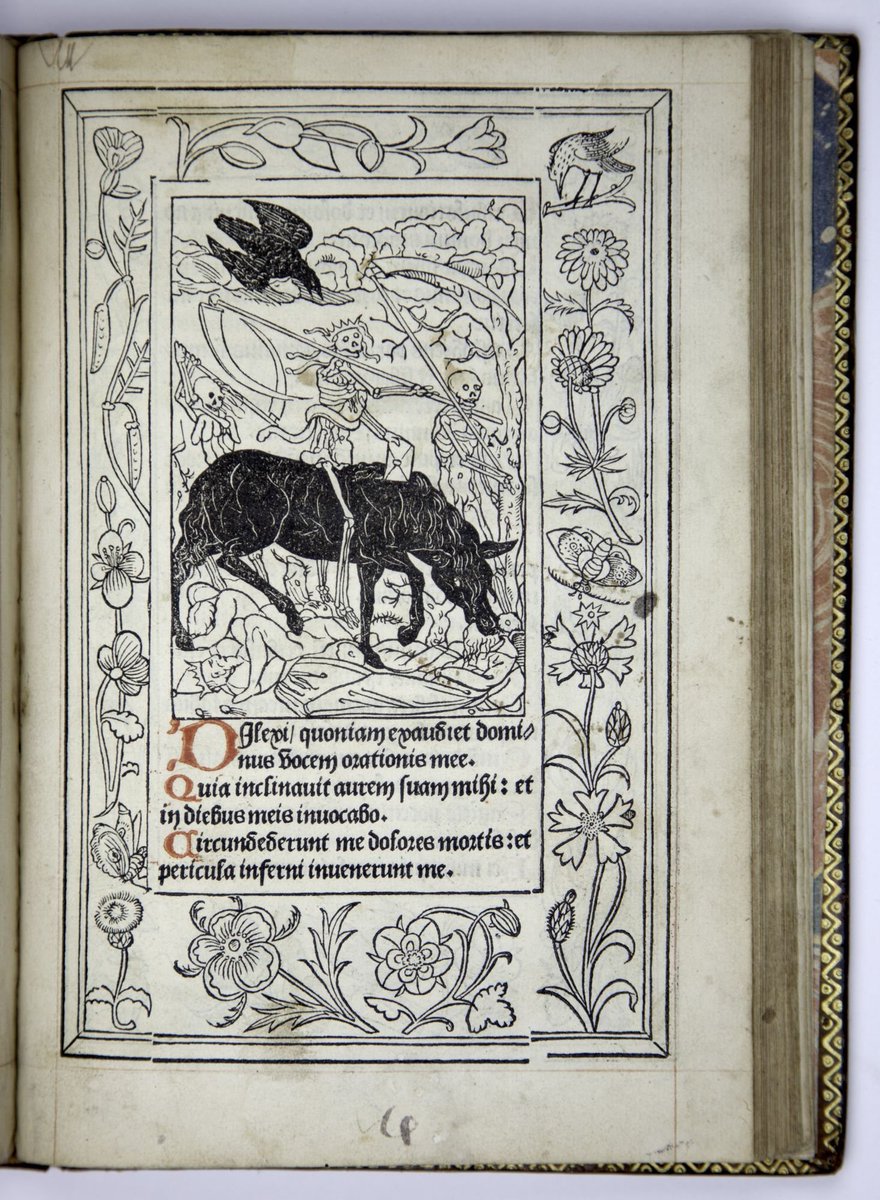 DIlexi/ quoniam exaudiet domi⸗
nus vocem orationis mee.
Quia inclinauit aurem suam mihi: et
in diebus meis inuocabo.
Circundederunt me dolores mortis: et
pericula inferni inuenerunt me.